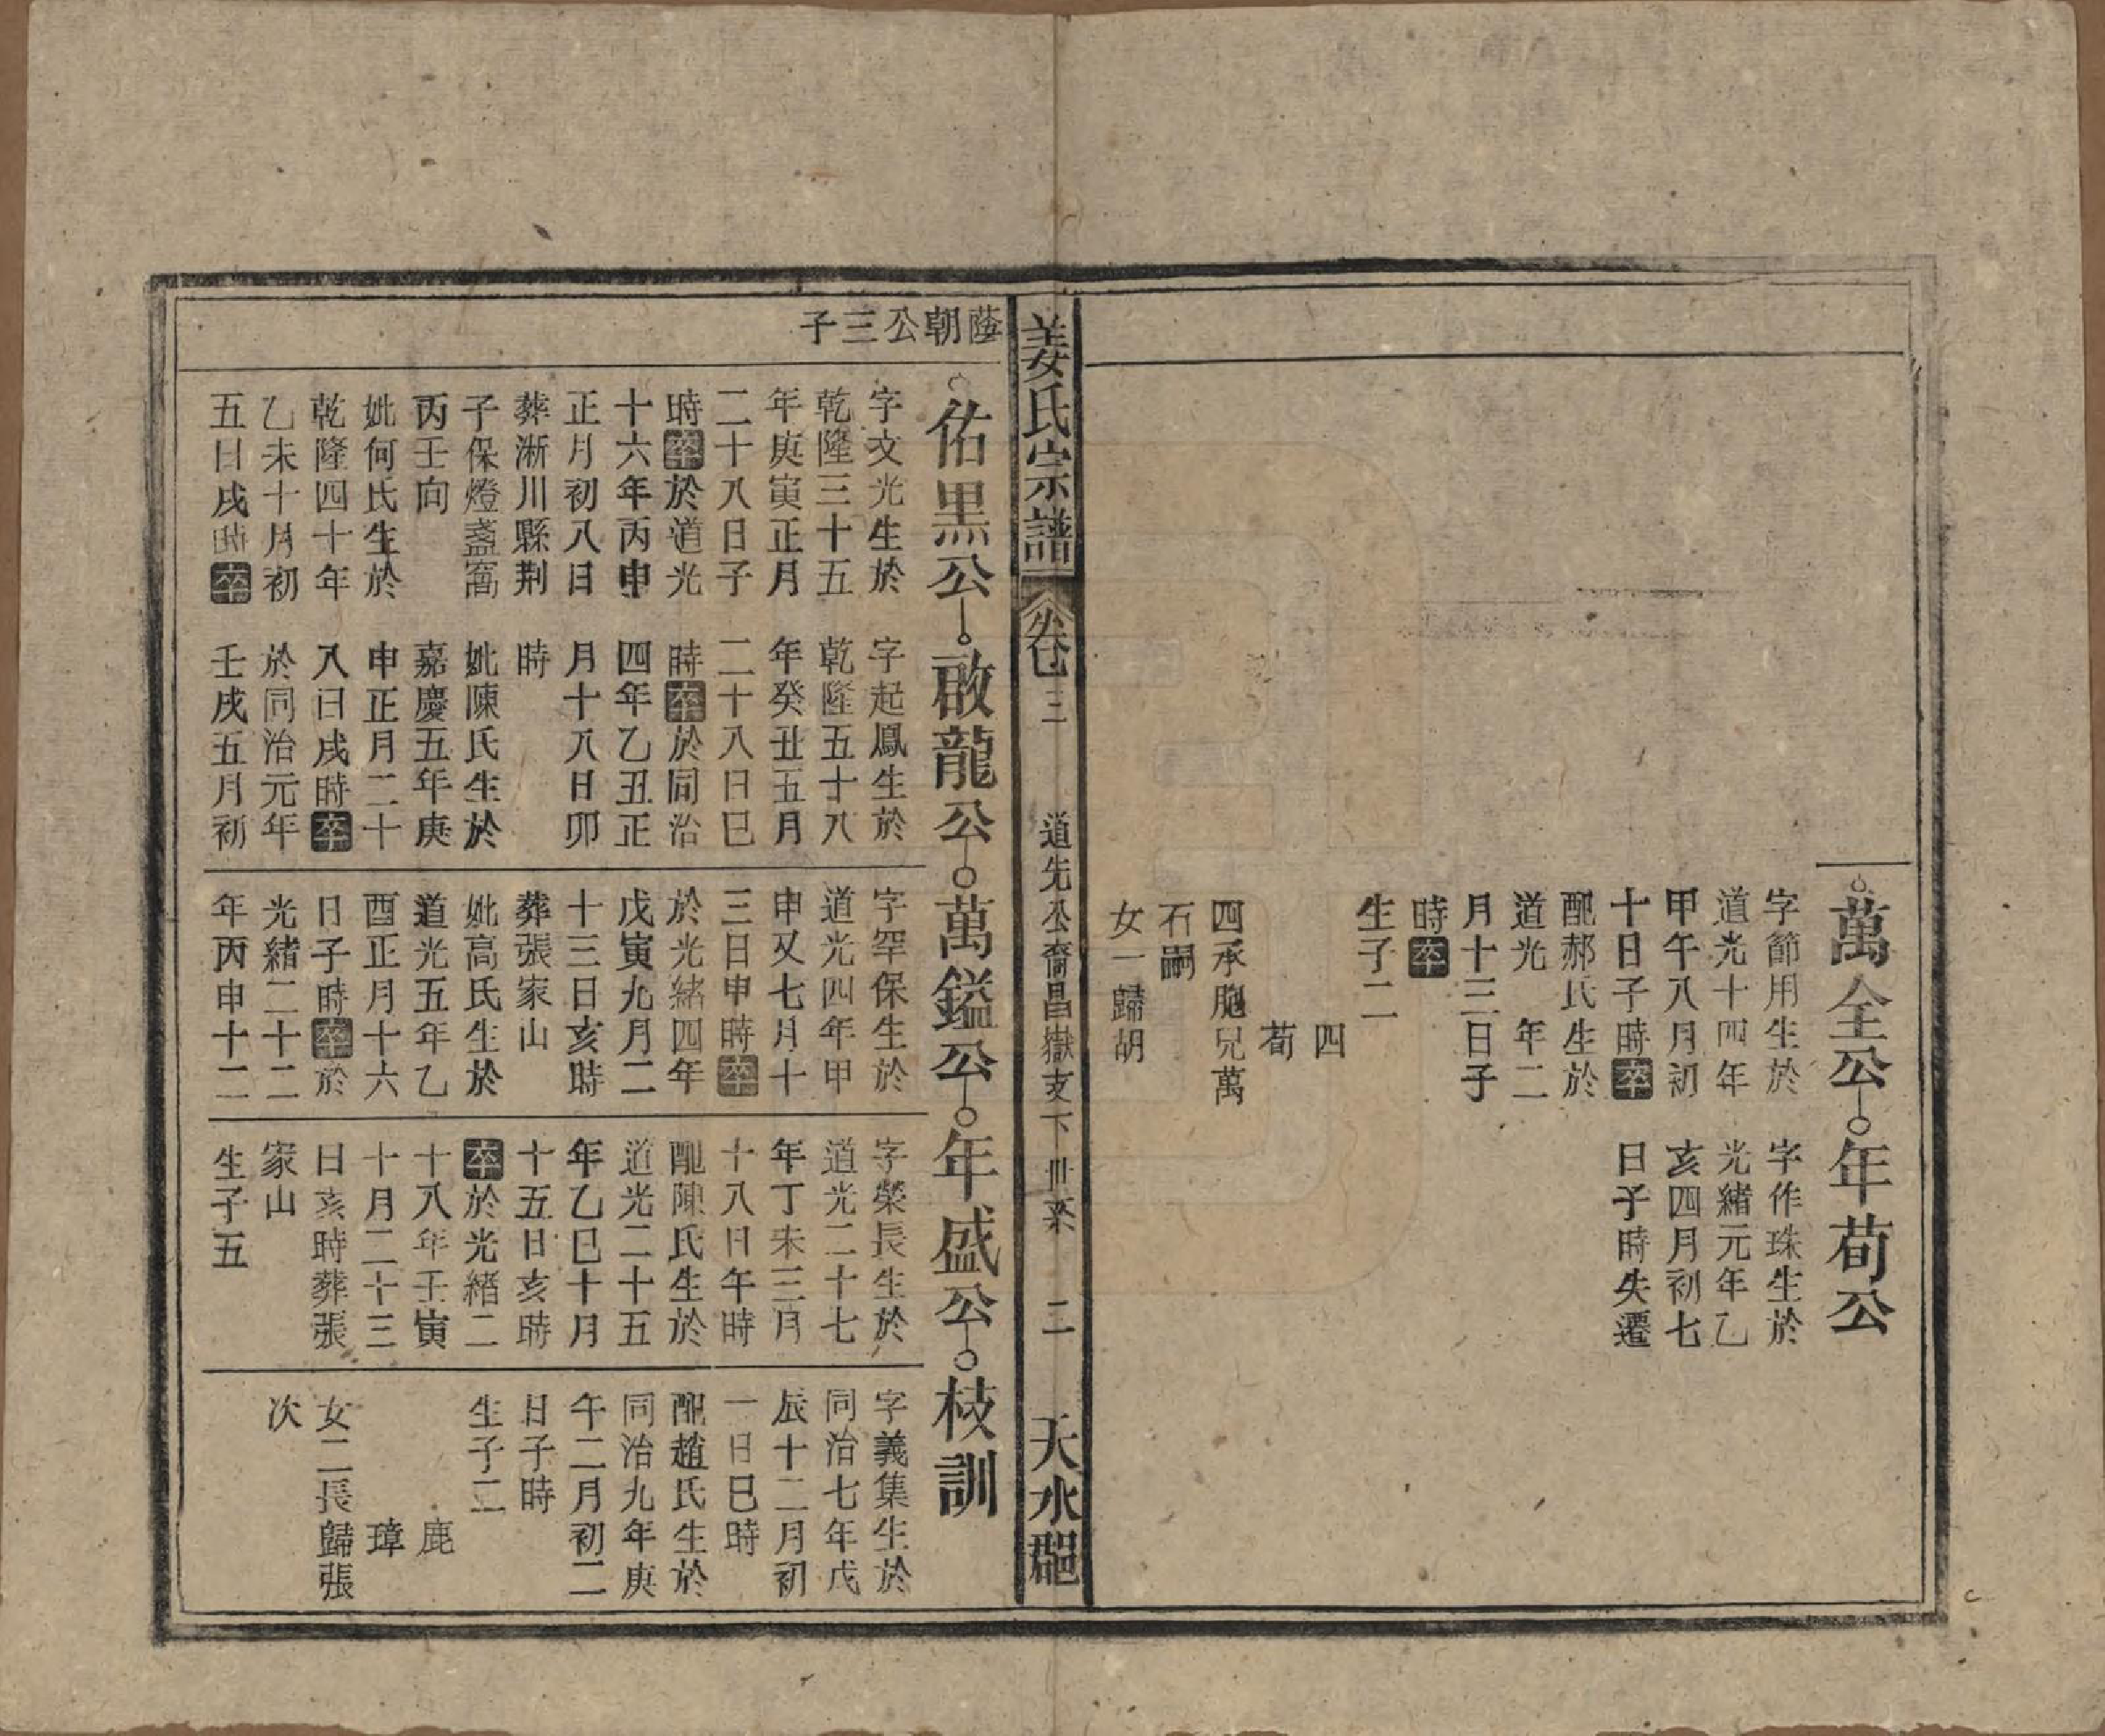 萬全公 年荀公
字節用生於
道光十四年
甲午八月初
十日子時卒
配郝氏生於
道光 年二
月十三日子
時卒
生子二
四
荀
四承胞兄萬
石嗣
女一歸胡
字作珠生於
光緒元年乙
亥四月初七
日子時失遷
姜氏宗譜 卷三 道先公裔昌嶽支下世系 二 天水郡
蔭朝公三子
佑黑公 啟龍公 萬鎰公 年盛公 枝訓
字文光生於
乾隆三十五
年庚寅正月
二十八日子
時卒於道光
十六年丙申
正月初八日
葬淅川縣荆
子保燈盞窩
丙壬向
妣何氏生於
乾隆四十年
乙未十月初
五日戌時卒
字起鳳生於
乾隆五十八
年癸丑五月
二十八日巳
時卒於同治
四年乙丑正
月十八日卯
時
妣陳氏生於
嘉慶五年庚
申正月二十
八日戌時卒
於同治元年
壬戌五月初
字罕保生於
道光四年甲
申又七月十
三日申時卒
於光緒四年
戊寅九月二
十三日亥時
葬張家山
妣高氏生於
道光五年乙
酉正月十六
日子時卒於
光緒二十二
年丙申十二
字榮長生於
道光二十七
年丁未三月
十八日午時
配陳氏生於
道光二十五
年乙巳十月
十五日亥時
卒於光緒二
十八年壬寅
十月二十三
日亥時葬張
家山
生子五
字義集生於
同治七年戊
辰十二月初
一日巳時
配趙氏生於
同治九年庚
午二月初二
日子時
生子二
鹿
璋
女二長歸張
次